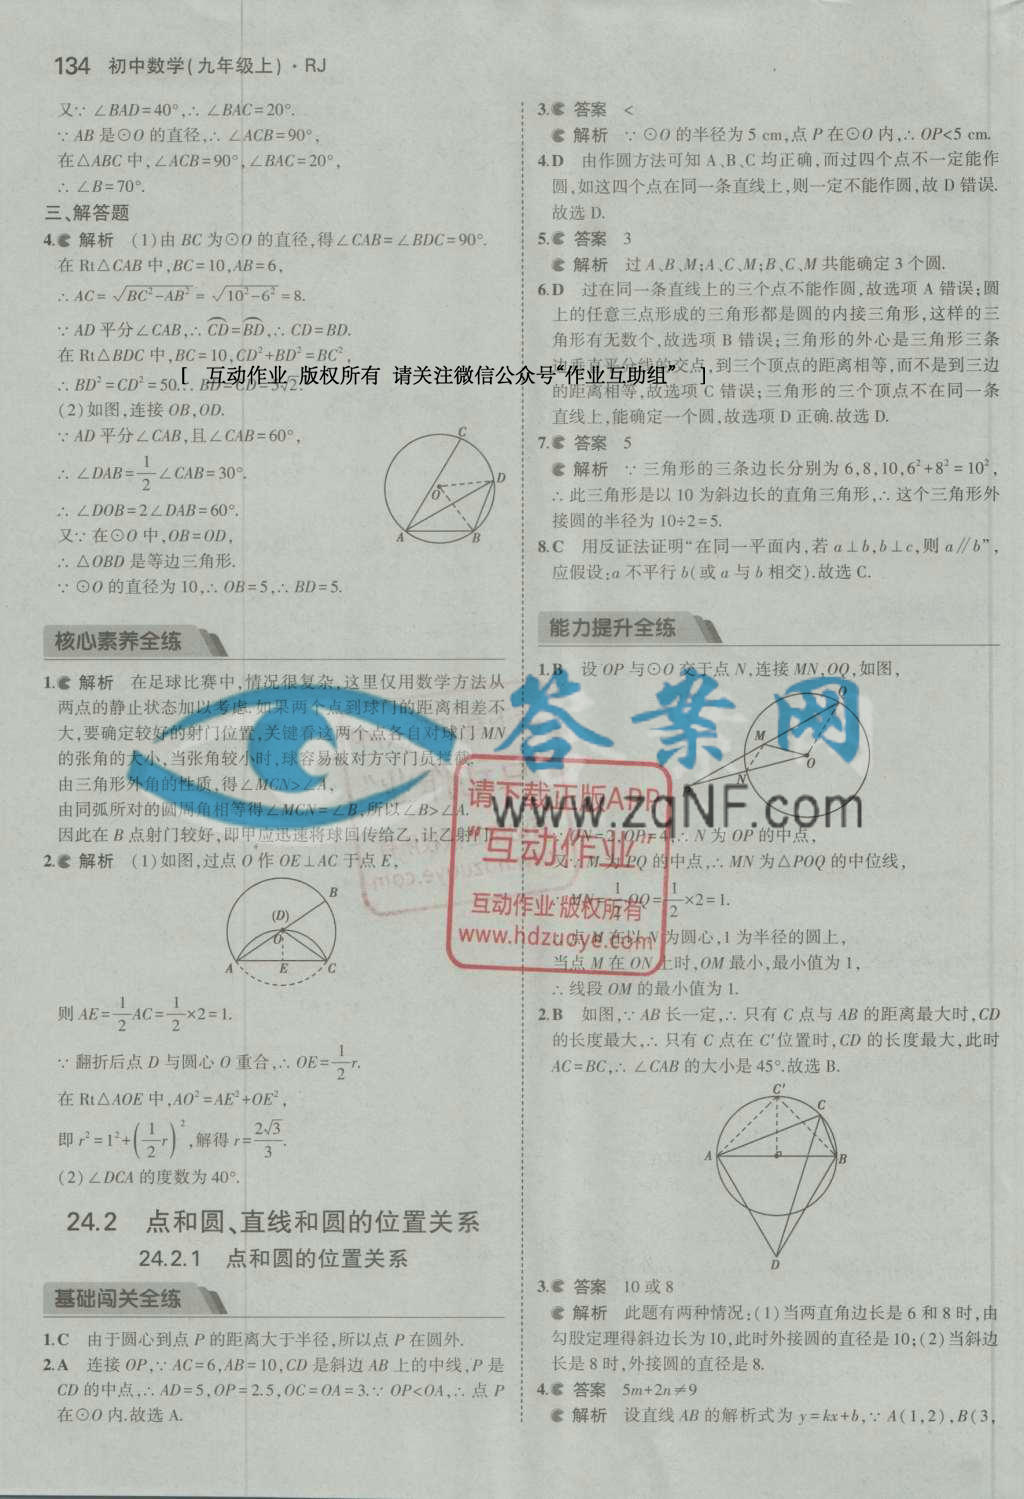 134 初中数学(九年级上)·RJ
又∵∠BAD=40°,∴∠BAC=20°.
∵AB是⊙O的直径,∴∠ACB=90°,
在△ABC中,∠ACB=90°,∠BAC=20°,
∴∠B=70°.
三、解答题
4. 解析 (1)由BC为⊙O的直径,得∠CAB=∠BDC=90°.
在Rt△CAB中,BC=10,AB=6,
∴AC=√(BC²-AB²)=√(10²-6²)=8.
∵AD平分∠CAB,∴CD=BD,∴CD=BD.
在Rt△BDC中,BC=10,CD²+BD²=BC²,
∴BD²=CD²=50.∴BD=CD=5√2.
(2)如图,连接OB,OD.
∵AD平分∠CAB,且∠CAB=60°,
∴∠DAB=1/2∠CAB=30°.
∴∠DOB=2∠DAB=60°.
又∵在⊙O中,OB=OD,
∴△OBD是等边三角形.
∵⊙O的直径为10,∴OB=5,∴BD=5.
C
D
O
A
B
核心素养全练
1. 解析 在足球比赛中,情况很复杂,这里仅用数学方法从
两点的静止状态加以考虑.如果两个点到球门的距离相差不
大,要确定较好的射门位置,关键看这两个点各自对球门MN
的张角的大小,当张角较小时,球容易被对方守门员拦截.
由三角形外角的性质,得∠MCN>∠A,
由同弧所对的圆周角相等得∠MCN=∠B,所以∠B>∠A.
因此在B点射门较好,即甲应迅速将球回传给乙,让乙射门.
2. 解析 (1)如图,过点O作OE⊥AC于点E,
B
(D)
O
A
E
C
则AE=1/2AC=1/2×2=1.
∵翻折后点D与圆心O重合,∴OE=1/2r.
在Rt△AOE中,AO²=AE²+OE²,
即r²=1²+(1/2r)²,解得r=2√3/3.
(2)∠DCA的度数为40°.
24.2 点和圆、直线和圆的位置关系
24.2.1 点和圆的位置关系
基础闯关全练
1.C 由于圆心到点P的距离大于半径,所以点P在圆外.
2.A 连接OP,∵AC=6,AB=10,CD是斜边AB上的中线,P是
CD的中点,∴AD=5,OP=2.5,OC=OA=3.∵OP<OA,∴点P
在⊙O内.故选A.
3. 答案 <
解析 ∵⊙O的半径为5 cm,点P在⊙O内,∴OP<5 cm.
4.D 由作圆方法可知A、B、C均正确,而过四个点不一定能作
圆,如这四个点在同一条直线上,则一定不能作圆,故D错误.
故选D.
5. 答案 3
解析 过A、B、M;A、C、M;B、C、M共能确定3个圆.
6.D 过在同一条直线上的三个点不能作圆,故选项A错误;圆
上的任意三点形成的三角形都是圆的内接三角形,这样的三
角形有无数个,故选项B错误;三角形的外心是三角形三条
边垂直平分线的交点,到三个顶点的距离相等,而不是到三边
的距离相等,故选项C错误;三角形的三个顶点不在同一条
直线上,能确定一个圆,故选项D正确.故选D.
7. 答案 5
解析 ∵三角形的三条边长分别为6,8,10,6²+8²=10²,
∴此三角形是以10为斜边长的直角三角形,∴这个三角形外
接圆的半径为10÷2=5.
8.C 用反证法证明“在同一平面内,若a⊥b,b⊥c,则a∥b”,
应假设:a不平行b(或a与b相交).故选C.
能力提升全练
1.B 设OP与⊙O交于点N,连接MN,OQ,如图,
Q
M
O
N
∵ON=2,OP=4,∴N为OP的中点,
又∵M为PQ的中点,∴MN为△POQ的中位线,
∴MN=1/2OQ=1/2×2=1.
∴点M在以N为圆心,1为半径的圆上,
当点M在ON上时,OM最小,最小值为1,
∴线段OM的最小值为1.
2.B 如图,∵AB长一定,∴只有C点与AB的距离最大时,CD
的长度最大,∴只有C点在C′位置时,CD的长度最大,此时
AC=BC,∴∠CAB的大小是45°.故选B.
C′
C
A
O
B
D
3. 答案 10或8
解析 此题有两种情况:(1)当两直角边长是6和8时,由
勾股定理得斜边长为10,此时外接圆的直径是10;(2)当斜边
长是8时,外接圆的直径是8.
4. 答案 5m+2n≠9
解析 设直线AB的解析式为y=kx+b,∵A(1,2),B(3,
[ 互动作业 版权所有 请关注微信公众号“作业互助组” ]
答案网
www.zqNF.com
请下载正版APP
“互动作业”
互动作业 版权所有
www.hdzuoye.com